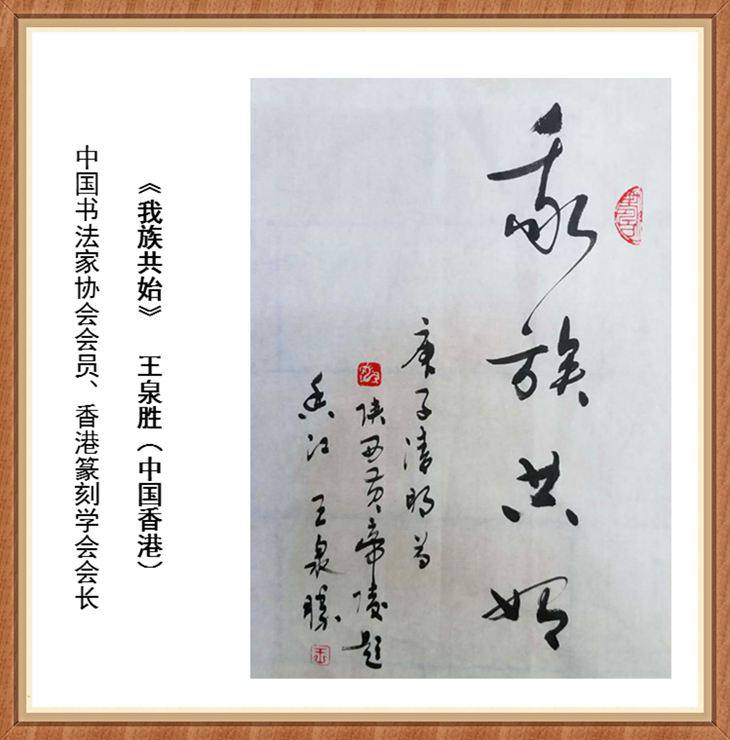 我族共始
庚子清明为
陕西黄帝陵题
香江 王泉勝
《我族共始》 王泉胜（中国香港）
中国书法家协会会员、香港篆刻学会会长